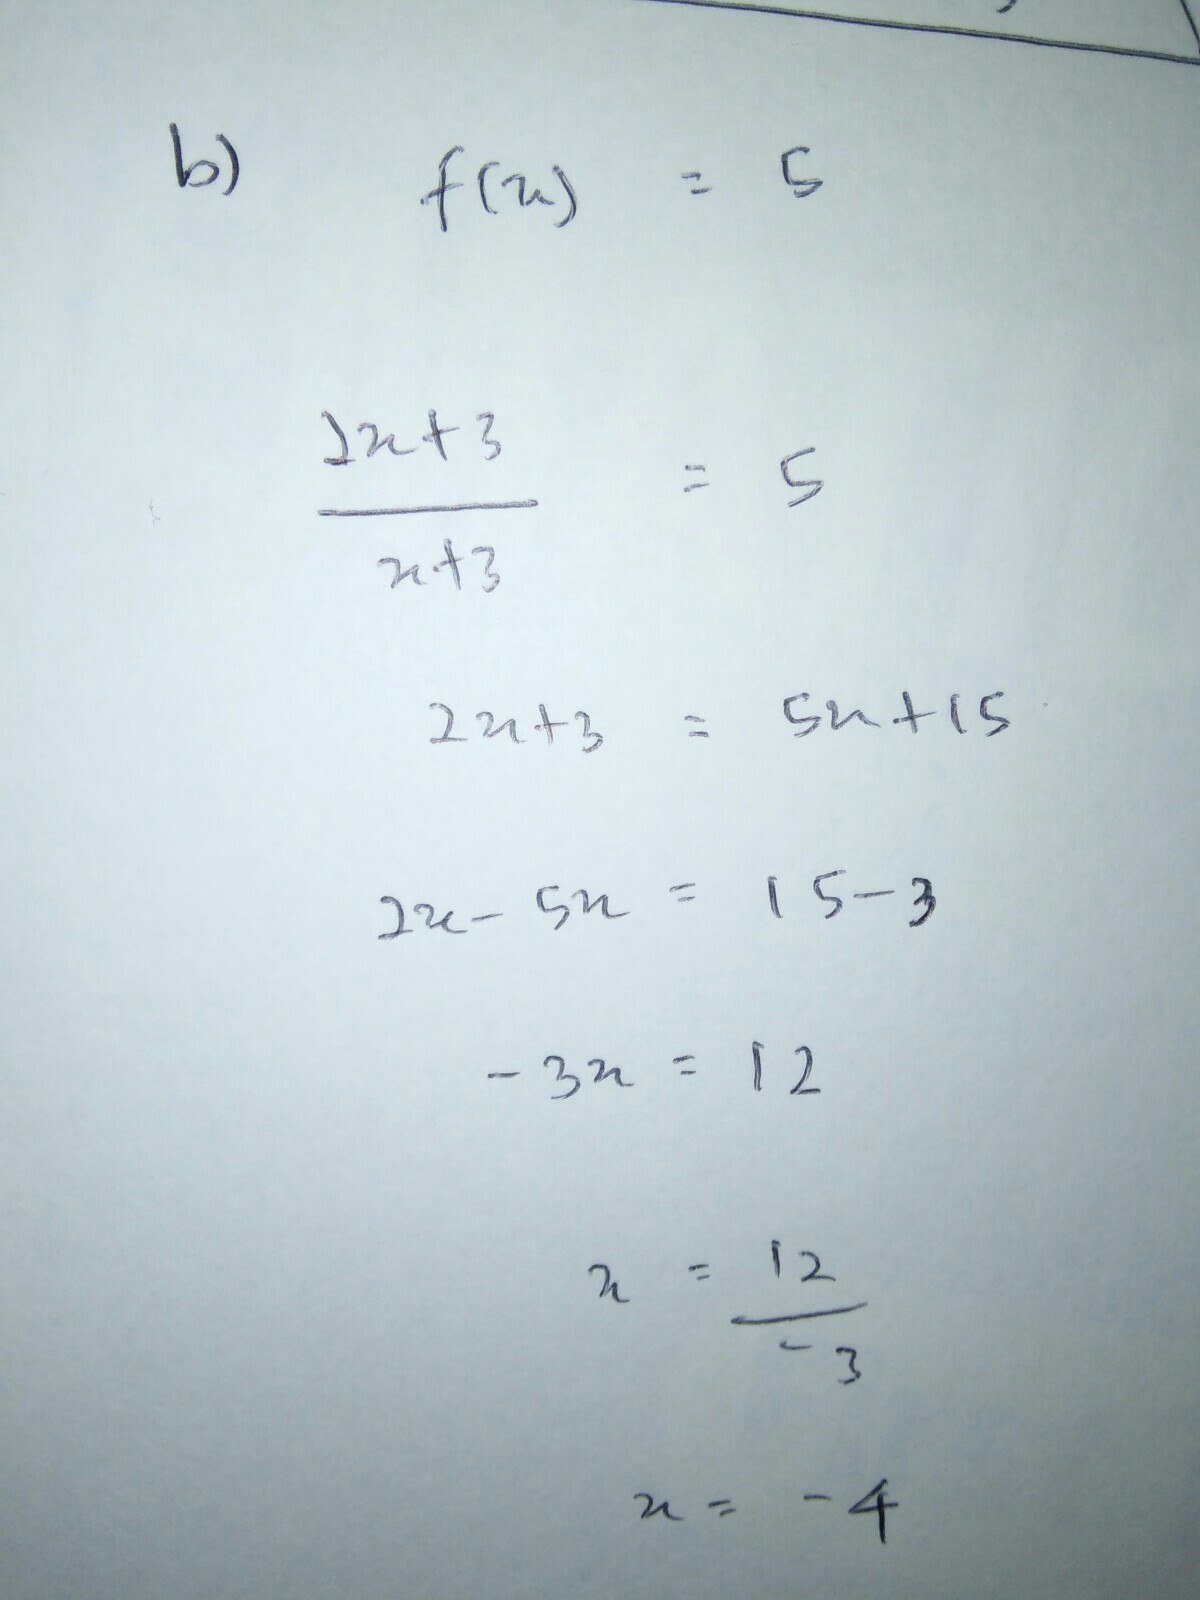 b) f(x) = 5
2x+3
= 5
x+3
2x+3 = 5x+15
2x-5x = 15-3
-3x = 12
x = 12
-3
x = -4